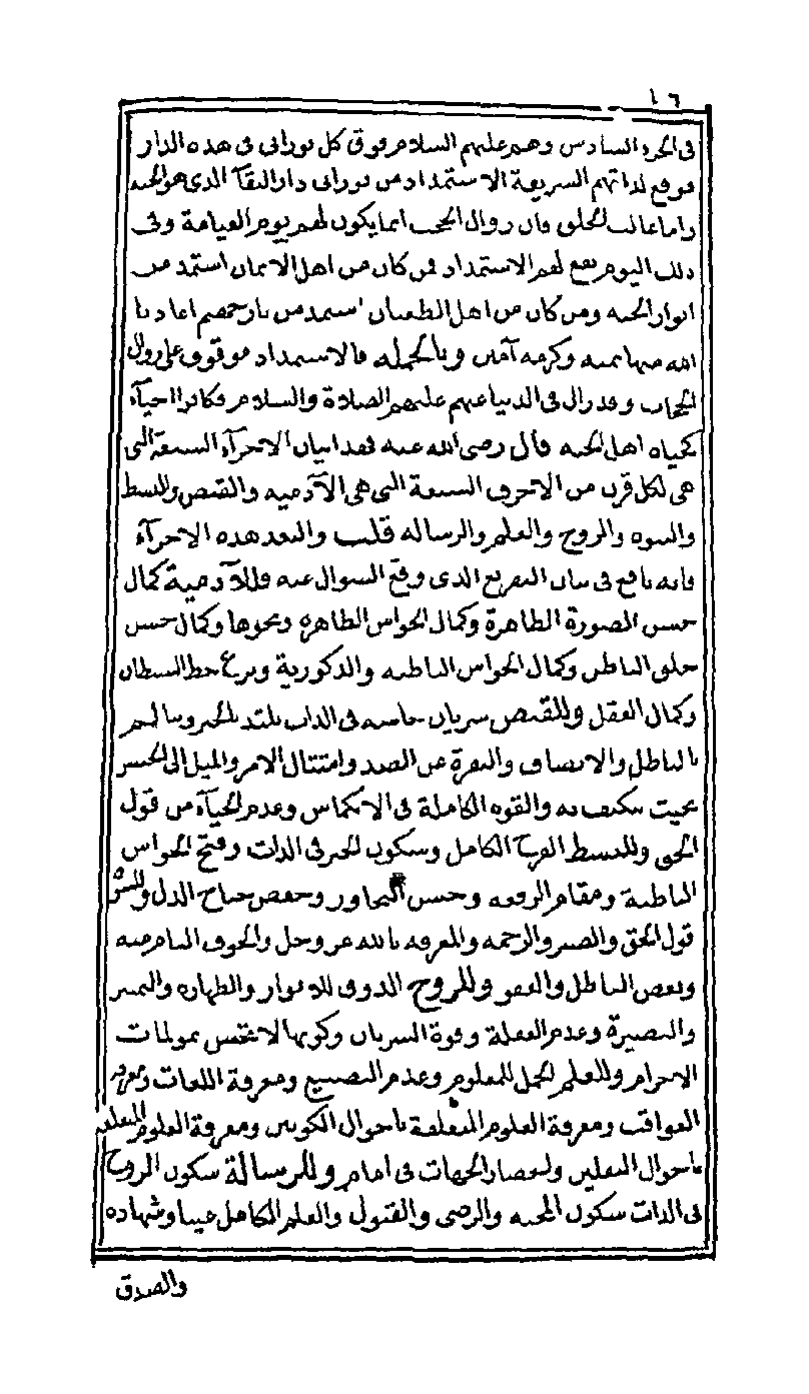 ١٦
في الجزء السادس وهم عليهم السلام فوق كل نوراني في هذه الدار
فوقع لذاتهم الشريفة الاستمداد من نوراني دار البقآ الذي هو الجنة
واما غالب الخلق فان زوال الحجب انما يكون لهم يوم القيامة وفي
ذلك اليوم يقع لهم الاستمداد فمن كان من اهل الايمان استمد من
انوار الجنة ومن كان من اهل الطغيان استمد من نار جهنم اعاذنا
الله منها بمنه وكرمه آمين وبالجملة فالاستمداد موقوف على زوال
الحجاب وقد زال في الدنيا عنهم عليهم الصلاة والسلام فكانوا احيآء
كحياة اهل الجنة قال رضي الله عنه فهذا بيان الاجزآء السبعة التي
هي لكل حرف من الاحرف السبعة التي هي الآدمية والقبض والبسط
والنبوة والروح والعلم والرسالة قلت والنعد هذه الاجزآء
فانه نافع في بيان التفريع الذي وقع السوال عنه فللآدمية كمال
حسن الصورة الظاهرة وكمال الحواس الظاهرة ونحوها وكمال حسن
خلق الباطن وكمال الحواس الباطنة والذكورية ونزع حظ الشيطان
وكمال العقل وللقبض سريان حاسة في الذات يلتذ بالخير ويتألم
بالباطل والانصاف والنفرة عن الضد وامتثال الامر والميل الى الجنس
بحيث يتكيف به والقوة الكاملة في الانكماش وعدم الحيآء من قول
الحق وللبسط الفرح الكامل وسكون الخير في الذات وفتح الحواس
الباطنة ومقام الرفعة وحسن التجاوز وخفض جناح الذل وللنبوة
قول الحق والصبر والرحمة والمعرفة بالله عز وجل والخوف التام منه
وبغض الباطل والعفو وللروح الذوق للانوار والطهارة والتمييز
والبصيرة وعدم الغفلة وقوة السريان وكونها لا تحس بمولمات
الاجرام وللعلم الحمل للمعلوم وعدم التضييع ومعرفة اللغات ومعرفة
العواقب ومعرفة العلوم المتعلقة باحوال الكونين ومعرفة العلوم المتعلقة
باحوال الثقلين وانحصار الجهات في امام وللرسالة سكون الروح
في الذات سكون المحبة والرضى والقبول والعلم الكامل غيبا وشهادة
والصدق